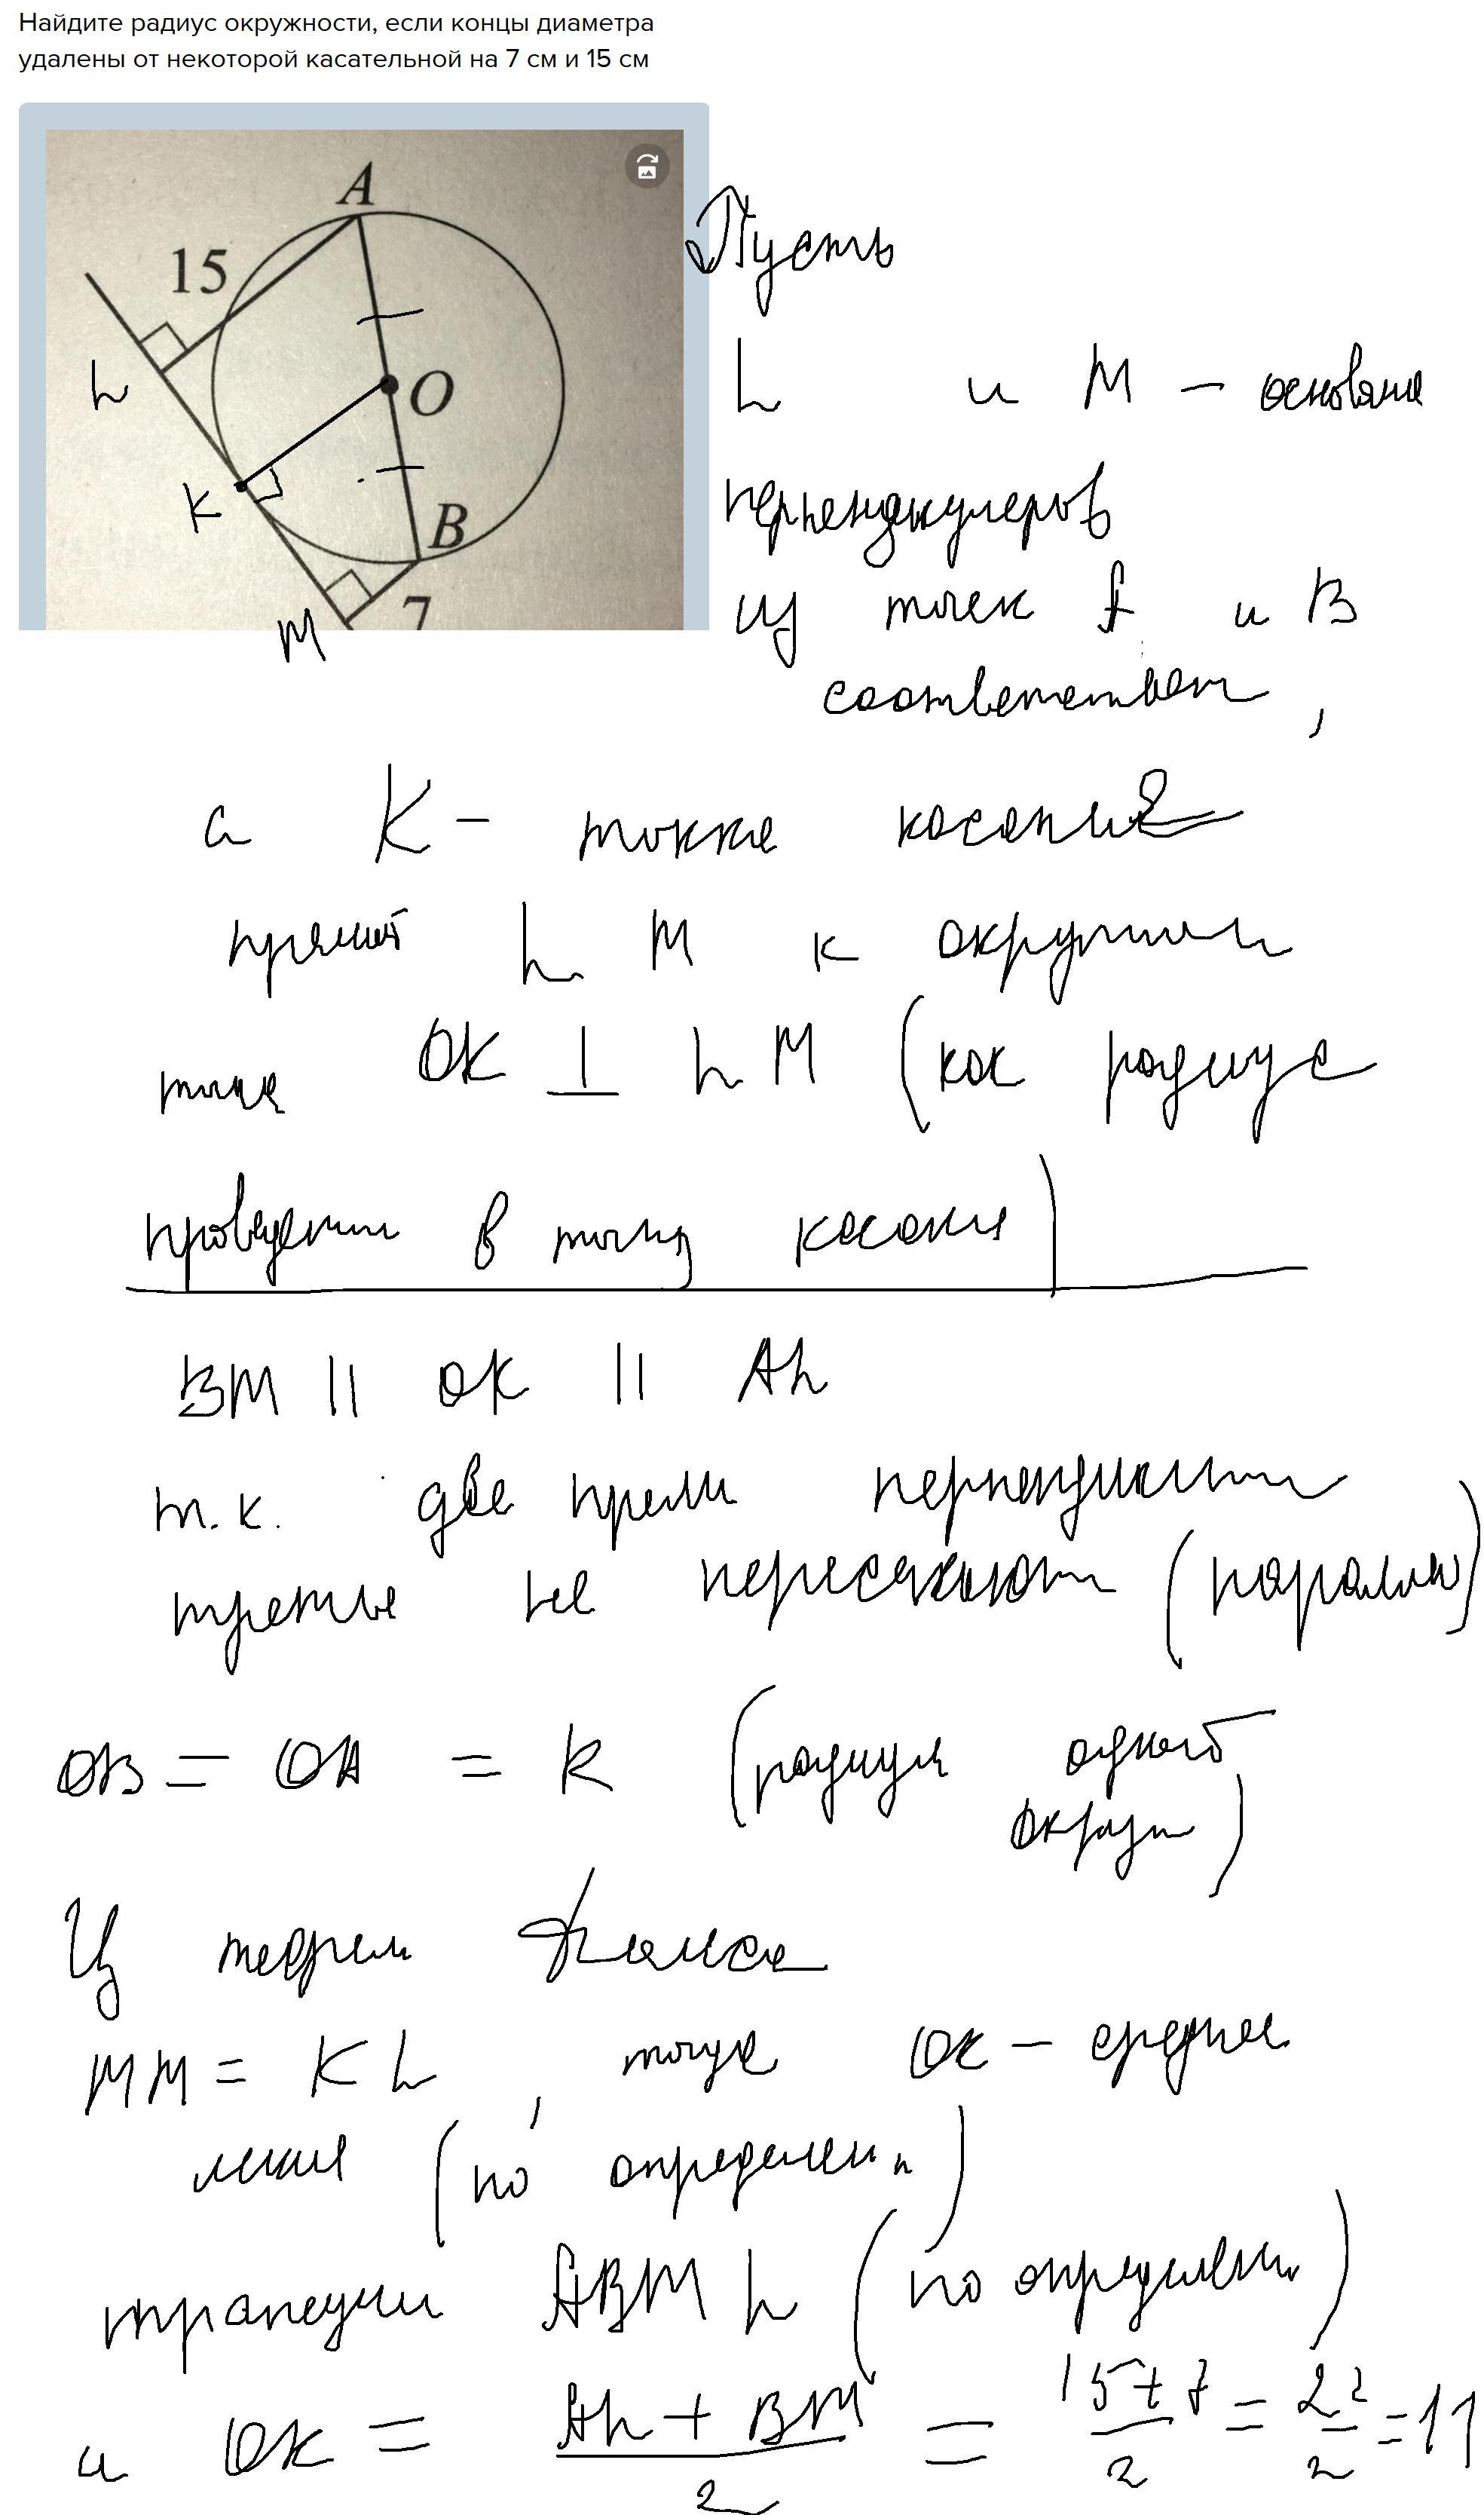 Найдите радиус окружности, если концы диаметра
удалены от некоторой касательной на 7 см и 15 см
A
15
O
L
K
B
7
M
Пусть
L и M - основания
перпендикуляров
из точек A и B
соответствен ,
а K - точка касания
прямой L M к окружности
тогда OK ⊥ L M (как радиус
проведенный в точку касания)
BM || OK || AL
т.к. две прямые перпендикулярн
третье не пересекают (паралл)
OB = OA = R (радиусы одной
окружн)
Из теоремы Фалеса
MM = K L , тогда OK - средняя
линия (по определен.)
трапеции ABM L (по определен)
а OK = AL + BM / 2 = 15+7 / 2 = 22 / 2 = 11